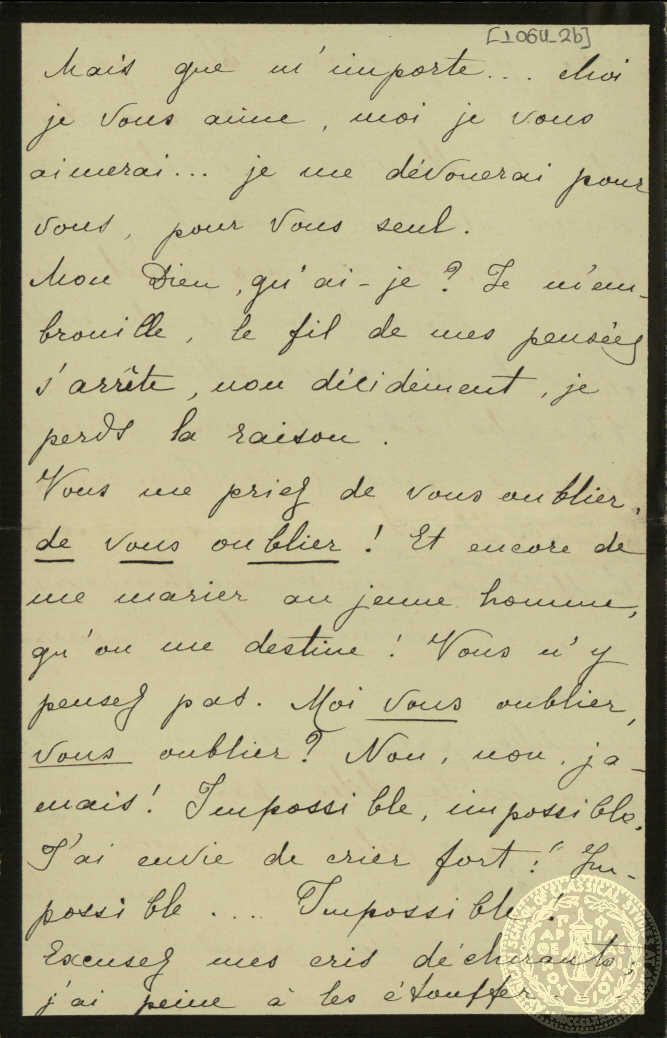 [106U_2b]
Mais que m'importe... Moi
je vous aime, moi je vous
aimerai... je me dévouerai pour
vous, pour vous seul.
Mon Dieu, qu'ai-je? Je m'em-
brouille, le fil de mes pensées
s'arrête, non décidément, je
perds la raison.
Vous me priez de vous oublier,
de vous oublier! Et encore de
me marier au jeune homme,
qu'on me destine! Vous n'y
pensez pas. Moi vous oublier,
vous oublier? Non, non, ja-
mais! Impossible, impossible.
J'ai envie de crier fort: "Im-
possible.... Impossible!
Excusez mes cris déchirants;
j'ai peine à les étouffer...
SCHOOL OF CLASSICAL STUDIES AT